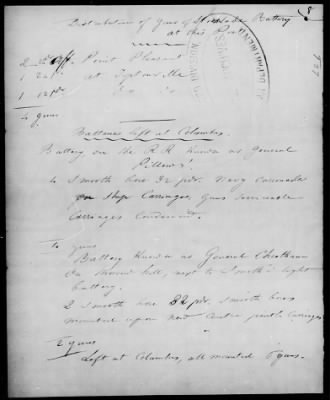 8
Distribution of Guns of Stockade Battery
at this Post
2 Point Pleasant
1 at Tiptonville
1 12 pdr. Do
4 guns
Batteries left at Columbus.
Battery on the R.R. known as General
Pillow's.
4 Smooth bore 32 pdr. Navy carronade
on Ship Carriages, Guns serviceable
Carriages Condemned.
4 guns
Battery Known as General Cheatham
on hill, next to Smith's light
battery.
2 Smooth bore 32 pdr. Smooth bores
mounted upon new Centre pintle Carriages
2 guns
Left at Columbus, all mounted 6 guns.